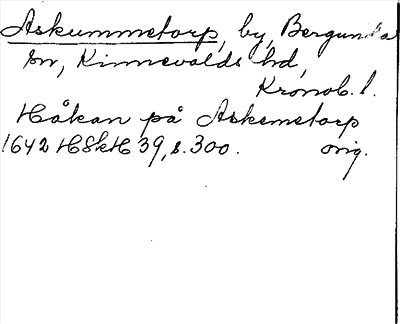 Askummetorp, by, Bergunda
sn, Kinnevalds hd,
Kronob. l.
Håkan på Askemetorp
1642 HSkH 39, s. 300. orig.